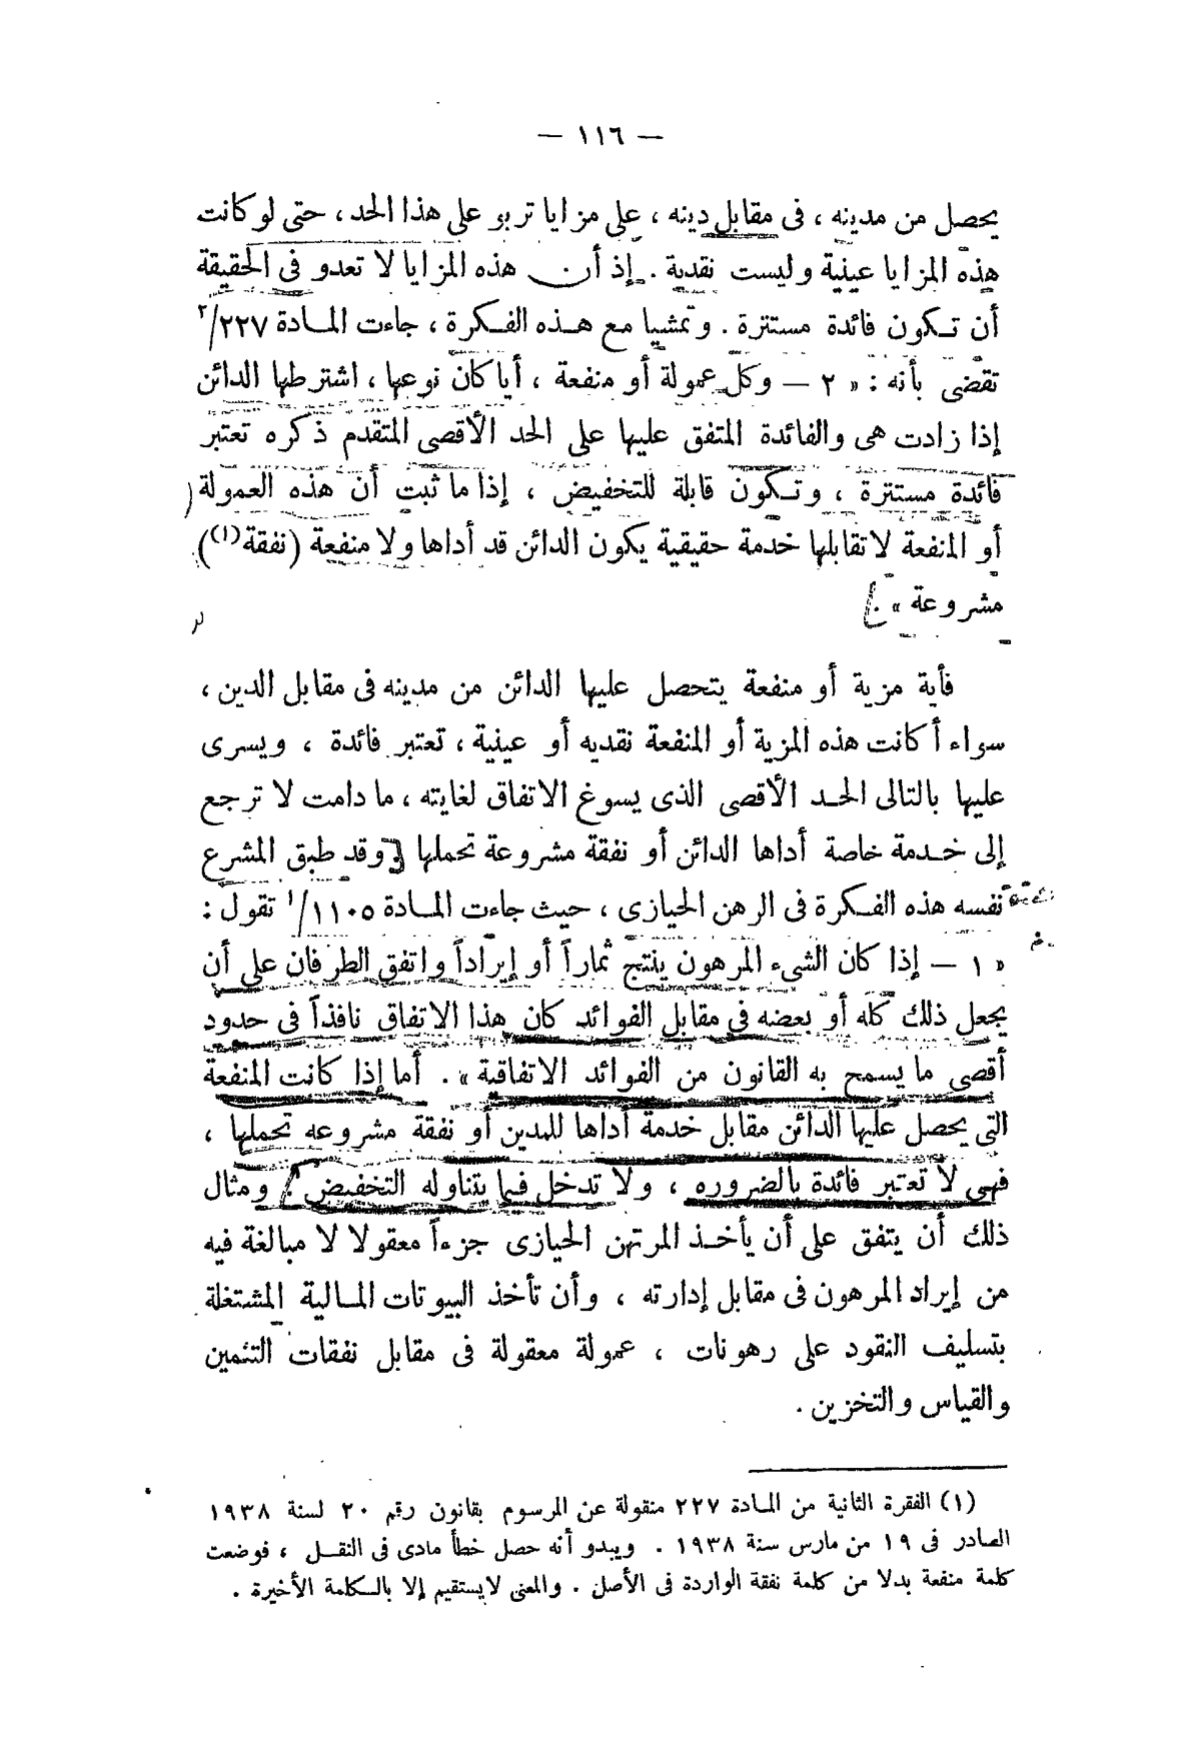 — ١١٦ —
يحصل من مدينه ، فى مقابل دينه ، على مزايا تربو على هذا الحد ، حتى لو كانت
هذه المزايا عينية وليست نقدية . إذ أن هذه المزايا لا تعدو فى الحقيقة
أن تكون فائدة مستترة . وتمشيا مع هذه الفكرة ، جاءت المادة ٢/٢٢٧
تقضى بأنه : « ٢ — وكل عمولة أو منفعة ، أيا كان نوعها ، اشترطها الدائن
إذا زادت هى والفائدة المتفق عليها على الحد الأقصى المتقدم ذكره تعتبر
فائدة مستترة ، وتكون قابلة للتخفيض ، إذا ما ثبت أن هذه العمولة
أو المنفعة لا تقابلها خدمة حقيقية يكون الدائن قد أداها ولا منفعة (نفقة(١))
مشروعة » .
فأية مزية أو منفعة يتحصل عليها الدائن من مدينه فى مقابل الدين ،
سواء أكانت هذه المزية أو المنفعة نقديه أو عينية ، تعتبر فائدة ، ويسرى
عليها بالتالى الحد الأقصى الذى يسوغ الاتفاق لغايته ، ما دامت لا ترجع
إلى خدمة خاصة أداها الدائن أو نفقة مشروعة تحملها . وقد طبق المشرع
نفسه هذه الفكرة فى الرهن الحيازى ، حيث جاءت المادة ١/١١٠٥ تقول :
« ١ — إذا كان الشىء المرهون ينتج ثماراً أو إيراداً واتفق الطرفان على أن
يجعل ذلك كله أو بعضه فى مقابل الفوائد كان هذا الاتفاق نافذاً فى حدود
أقصى ما يسمح به القانون من الفوائد الاتفاقية » . أما إذا كانت المنفعة
التى يحصل عليها الدائن مقابل خدمة أداها للمدين أو نفقة مشروعه تحملها ،
فهى لا تعتبر فائدة بالضروره ، ولا تدخل فيما يتناوله التخفيض . ومثال
ذلك أن يتفق على أن يأخذ المرتهن الحيازى جزءاً معقولا لا مبالغة فيه
من إيراد المرهون فى مقابل إدارته ، وأن تأخذ البيوتات المالية المشتغلة
بتسليف النقود على رهونات ، عمولة معقولة فى مقابل نفقات التثمين
والقياس والتخزين .
(١) الفقرة الثانية من المادة ٢٢٧ منقولة عن المرسوم بقانون رقم ٢٠ لسنة ١٩٣٨
الصادر فى ١٩ من مارس سنة ١٩٣٨ . ويبدو أنه حصل خطأ مادى فى النقل ، فوضعت
كلمة منفعة بدلا من كلمة نفقة الواردة فى الأصل . والمعنى لا يستقيم إلا بالكلمة الأخيرة .